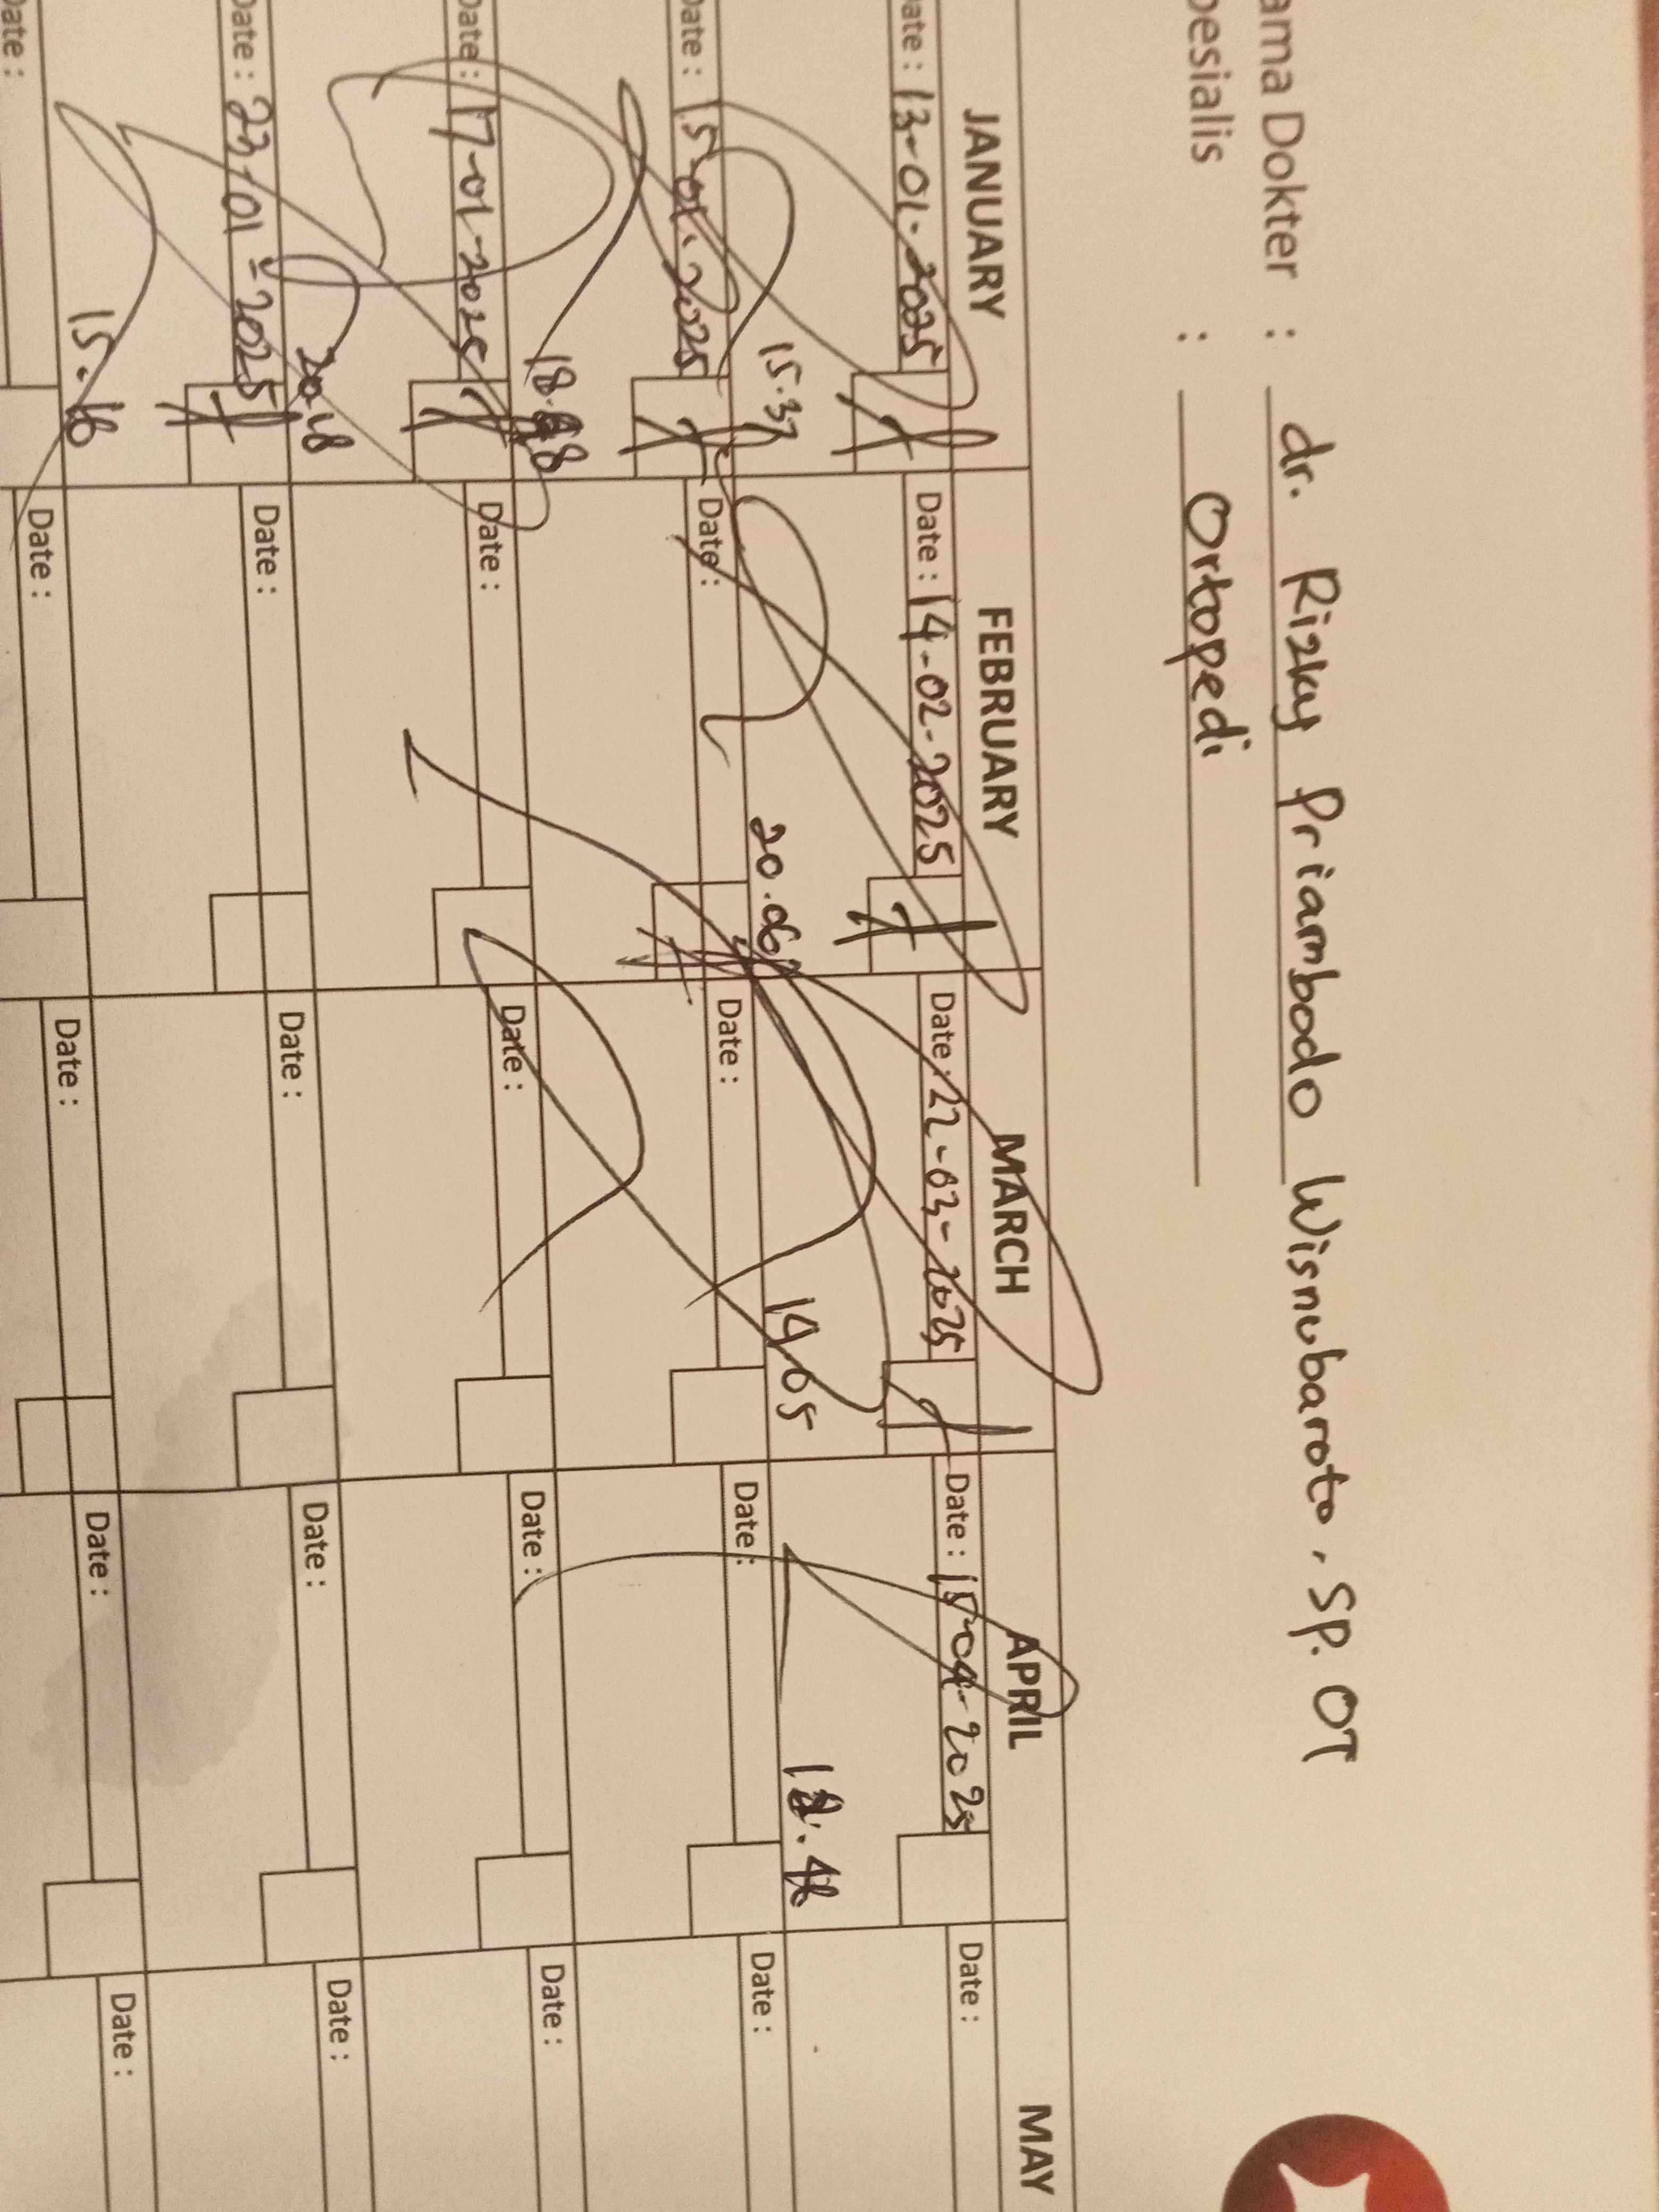 ama Dokter : dr. Rizky Priambodo Wisnubaroto, Sp. OT
pesialis : Ortopedi
JANUARY FEBRUARY MARCH APRIL MAY
Date : 13-01-2025 Date : 14-02-2025 Date : 22-03-2025 Date : 15-04-2025 Date :
15.37 20.06 14.05 18.48
Date : 15-01-2025 Date : Date : Date : Date :
Date : 17-01-2025 Date : Date : Date : Date :
20.18
Date : 23-01-2025 Date : Date : Date : Date :
15.16
Date : Date : Date : Date : Date :